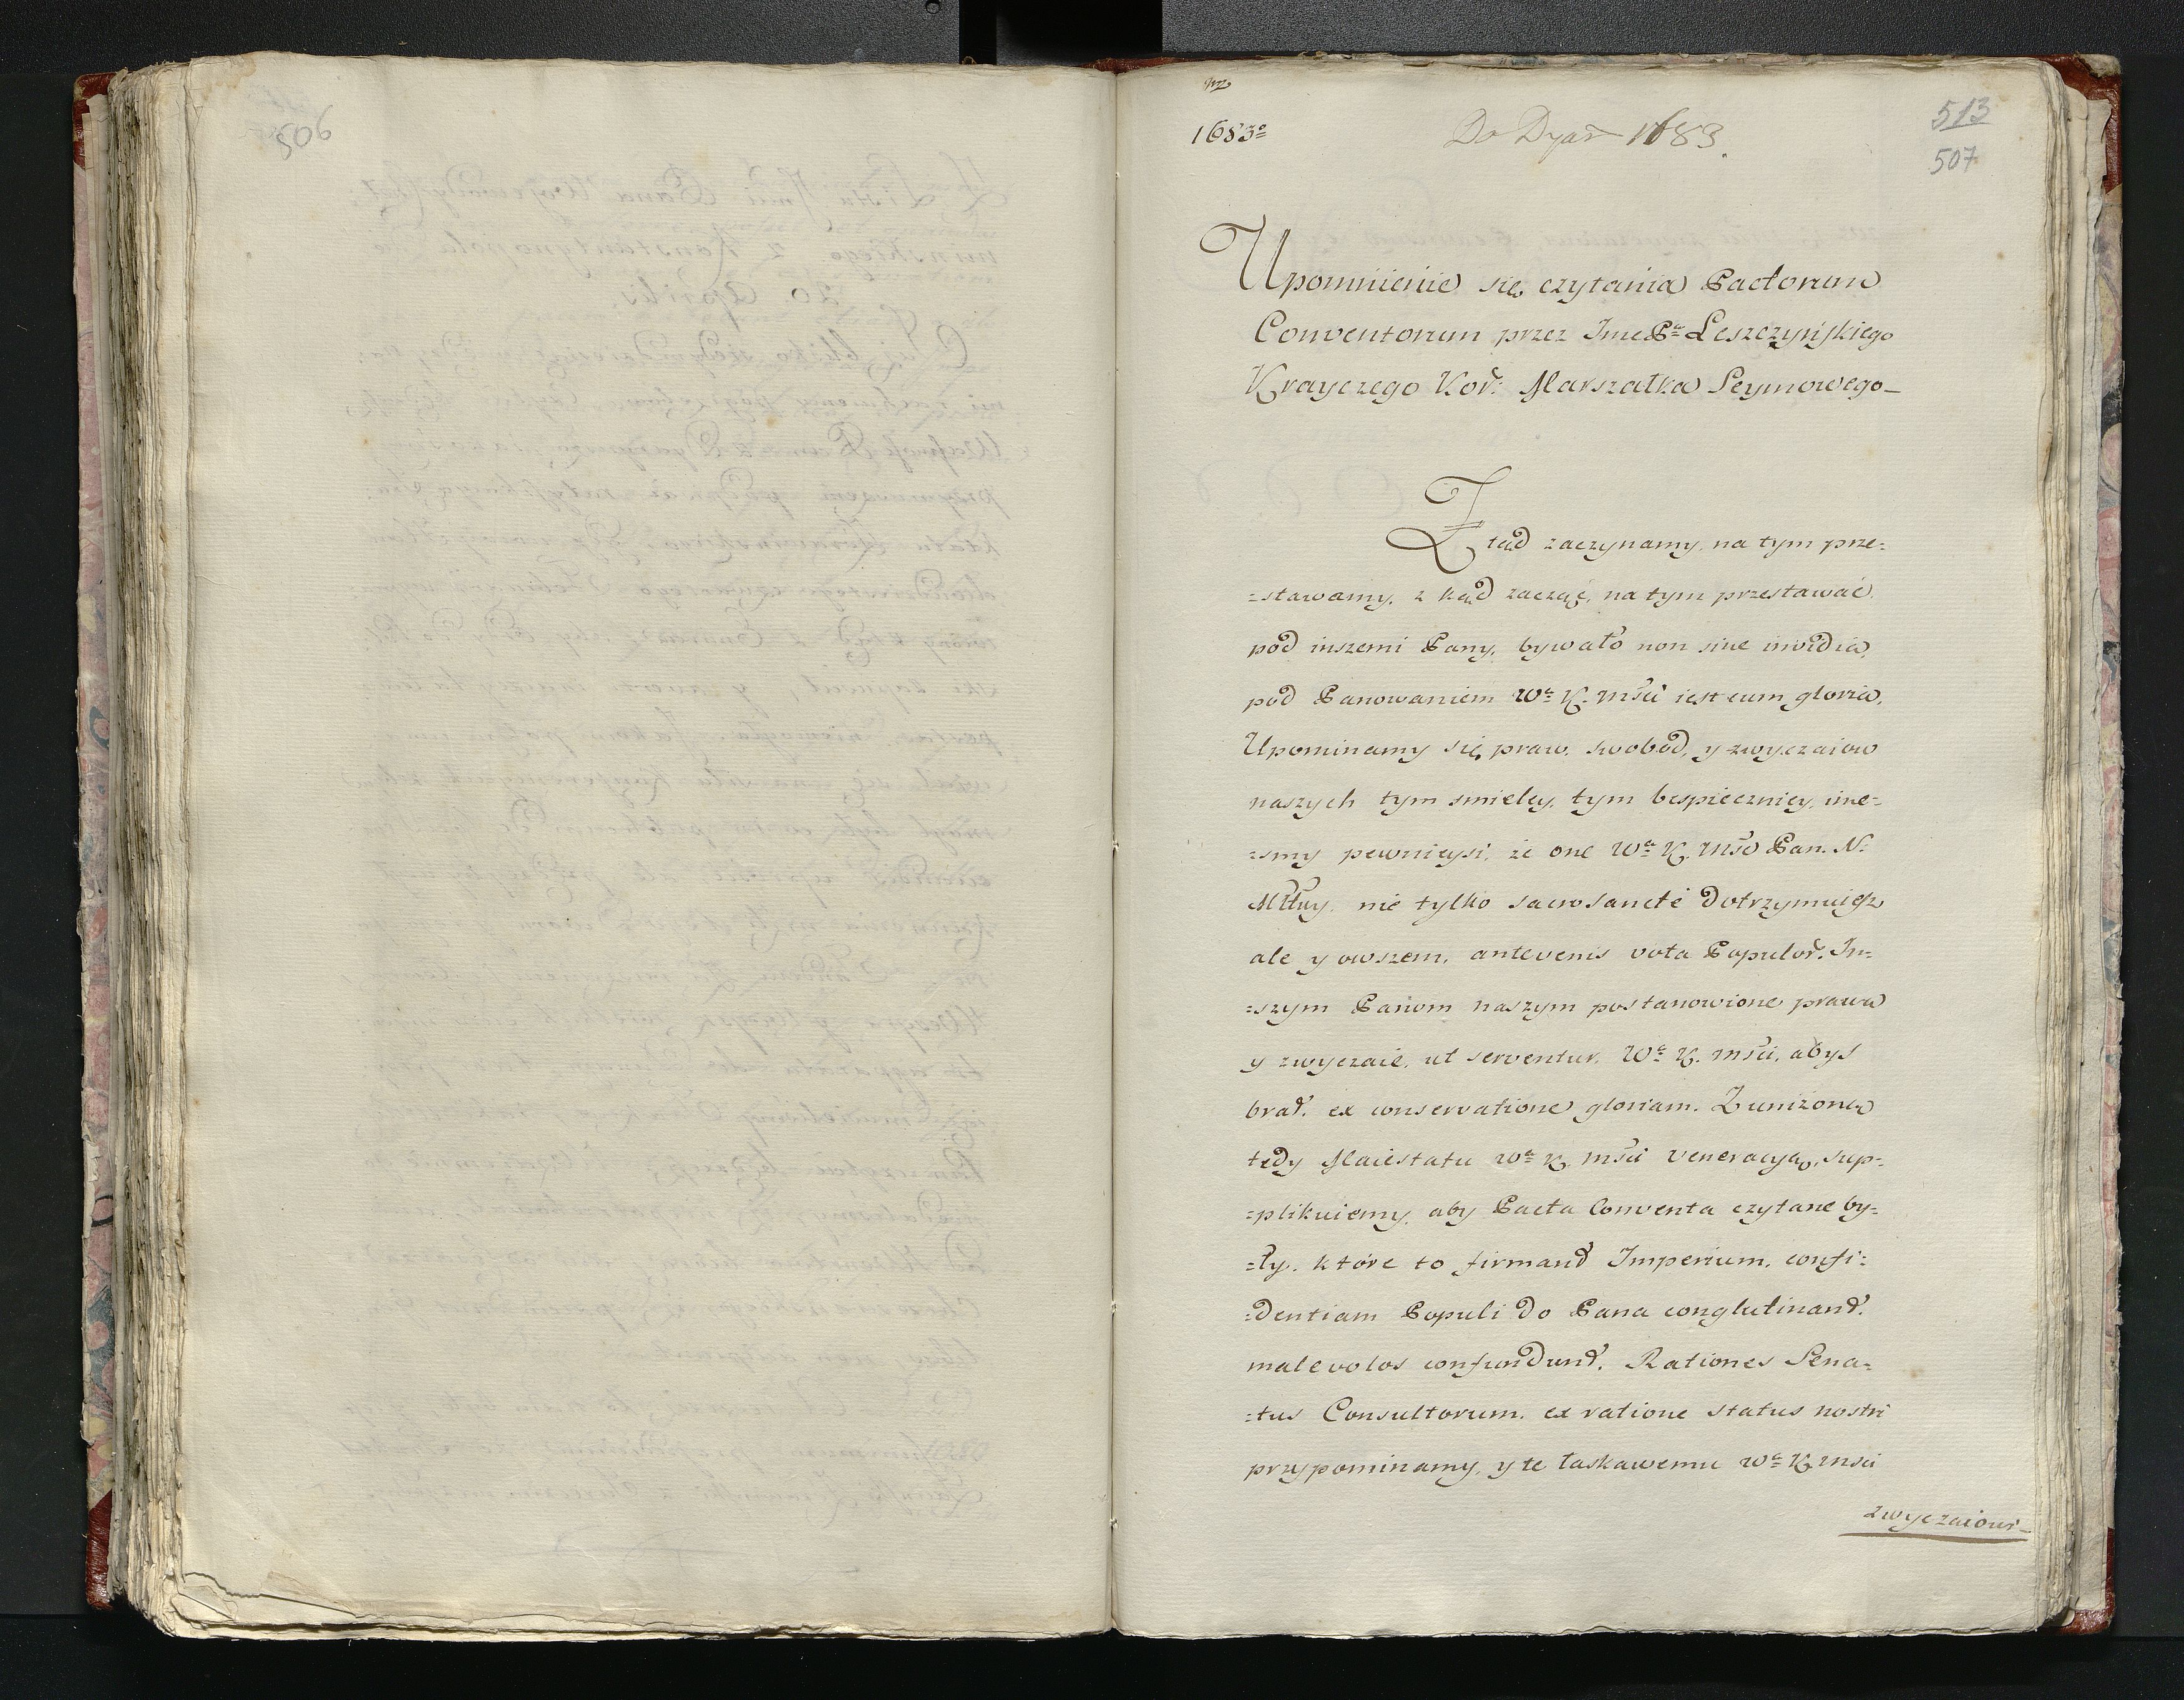 506
1683º
Do Dyar 1683.
513
507
Upomnienie się czytania Pactorum
Conventorum przez Jme Pª Leszczyńskiego
Krayczego Kor: Marszałka Seymowego_
Ztąd zaczynamy, na tym prze=
=stawamy, z kąd zacząć, na tym przestawać,
pod inszemi Pany, bywało non sine invidia,
pod Panowaniem Wª K. Mści iest cum gloria,
Upominamy się praw, swobod, y zwyczaiow
naszych tym smieley, tym bespieczniey, im e=
=smy pewnieysi, że one Wª K. Mść Pan. N:
Miłwy, nie tylko sacrosancte dotrzymuiesz
ale y owszem, antevenis vota Populor. In=
=szym Panom naszym postanowione prawa
y zwyczaie, ut serventur, Wª K. Mści, abys
brał, ex conservatione gloriam. Z unizoną
tedy Maiestatu Wª K. Mści veneracyą, sup=
=plikuiemy, aby Pacta Conventa czytane by=
=ły, które to firmand Imperium, confi=
=dentiam Populi do Pana conglutinand,
malevolos confundund. Rationes Sena=
=tus Consultorum, ex ratione status nostri
przypominamy, y te łaskawemu Wª K. Mści
zwyczaiowi_